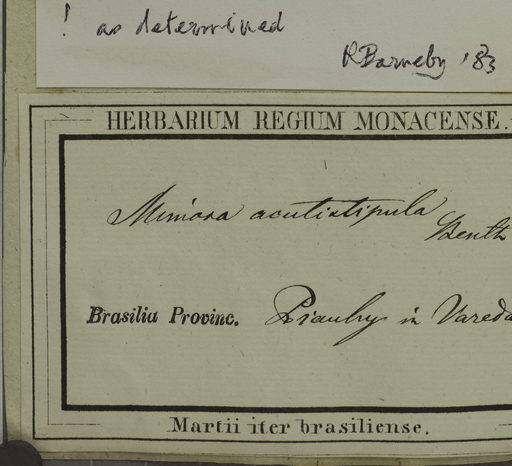 ! as determined
R Barneby '83
HERBARIUM REGIUM MONACENSE.
Mimosa acutistipula
Benth
Brasilia Provinc. Piauhy in Vareda
Martii iter brasiliense.